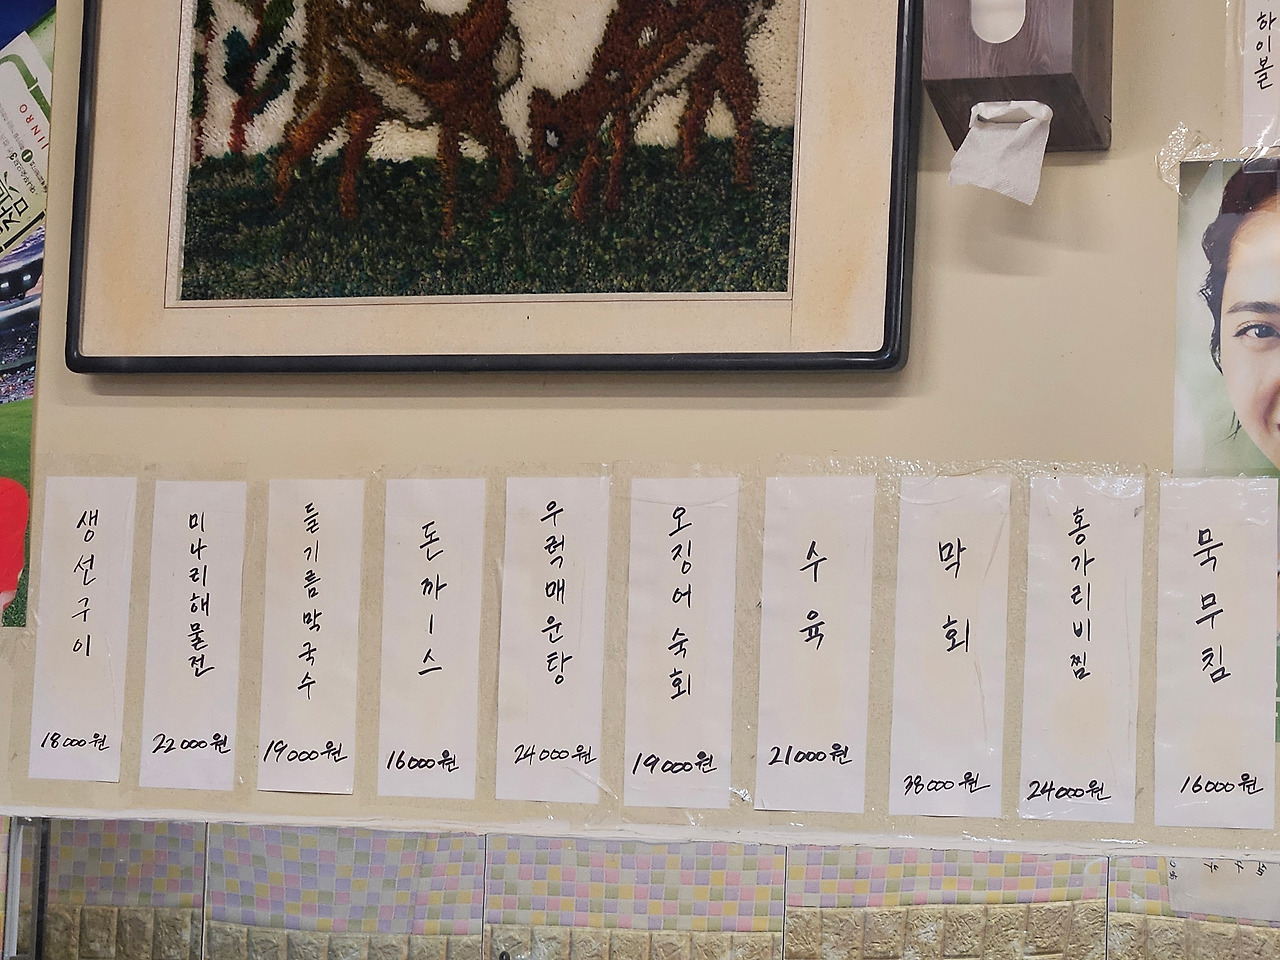 하이볼
JINRO
생선구이
18000원
미나리해물전
22000원
들기름막국수
19000원
돈까스
16000원
우럭매운탕
24000원
오징어숙회
19000원
수육
21000원
막회
38000원
홍가리비찜
24000원
묵무침
16000원